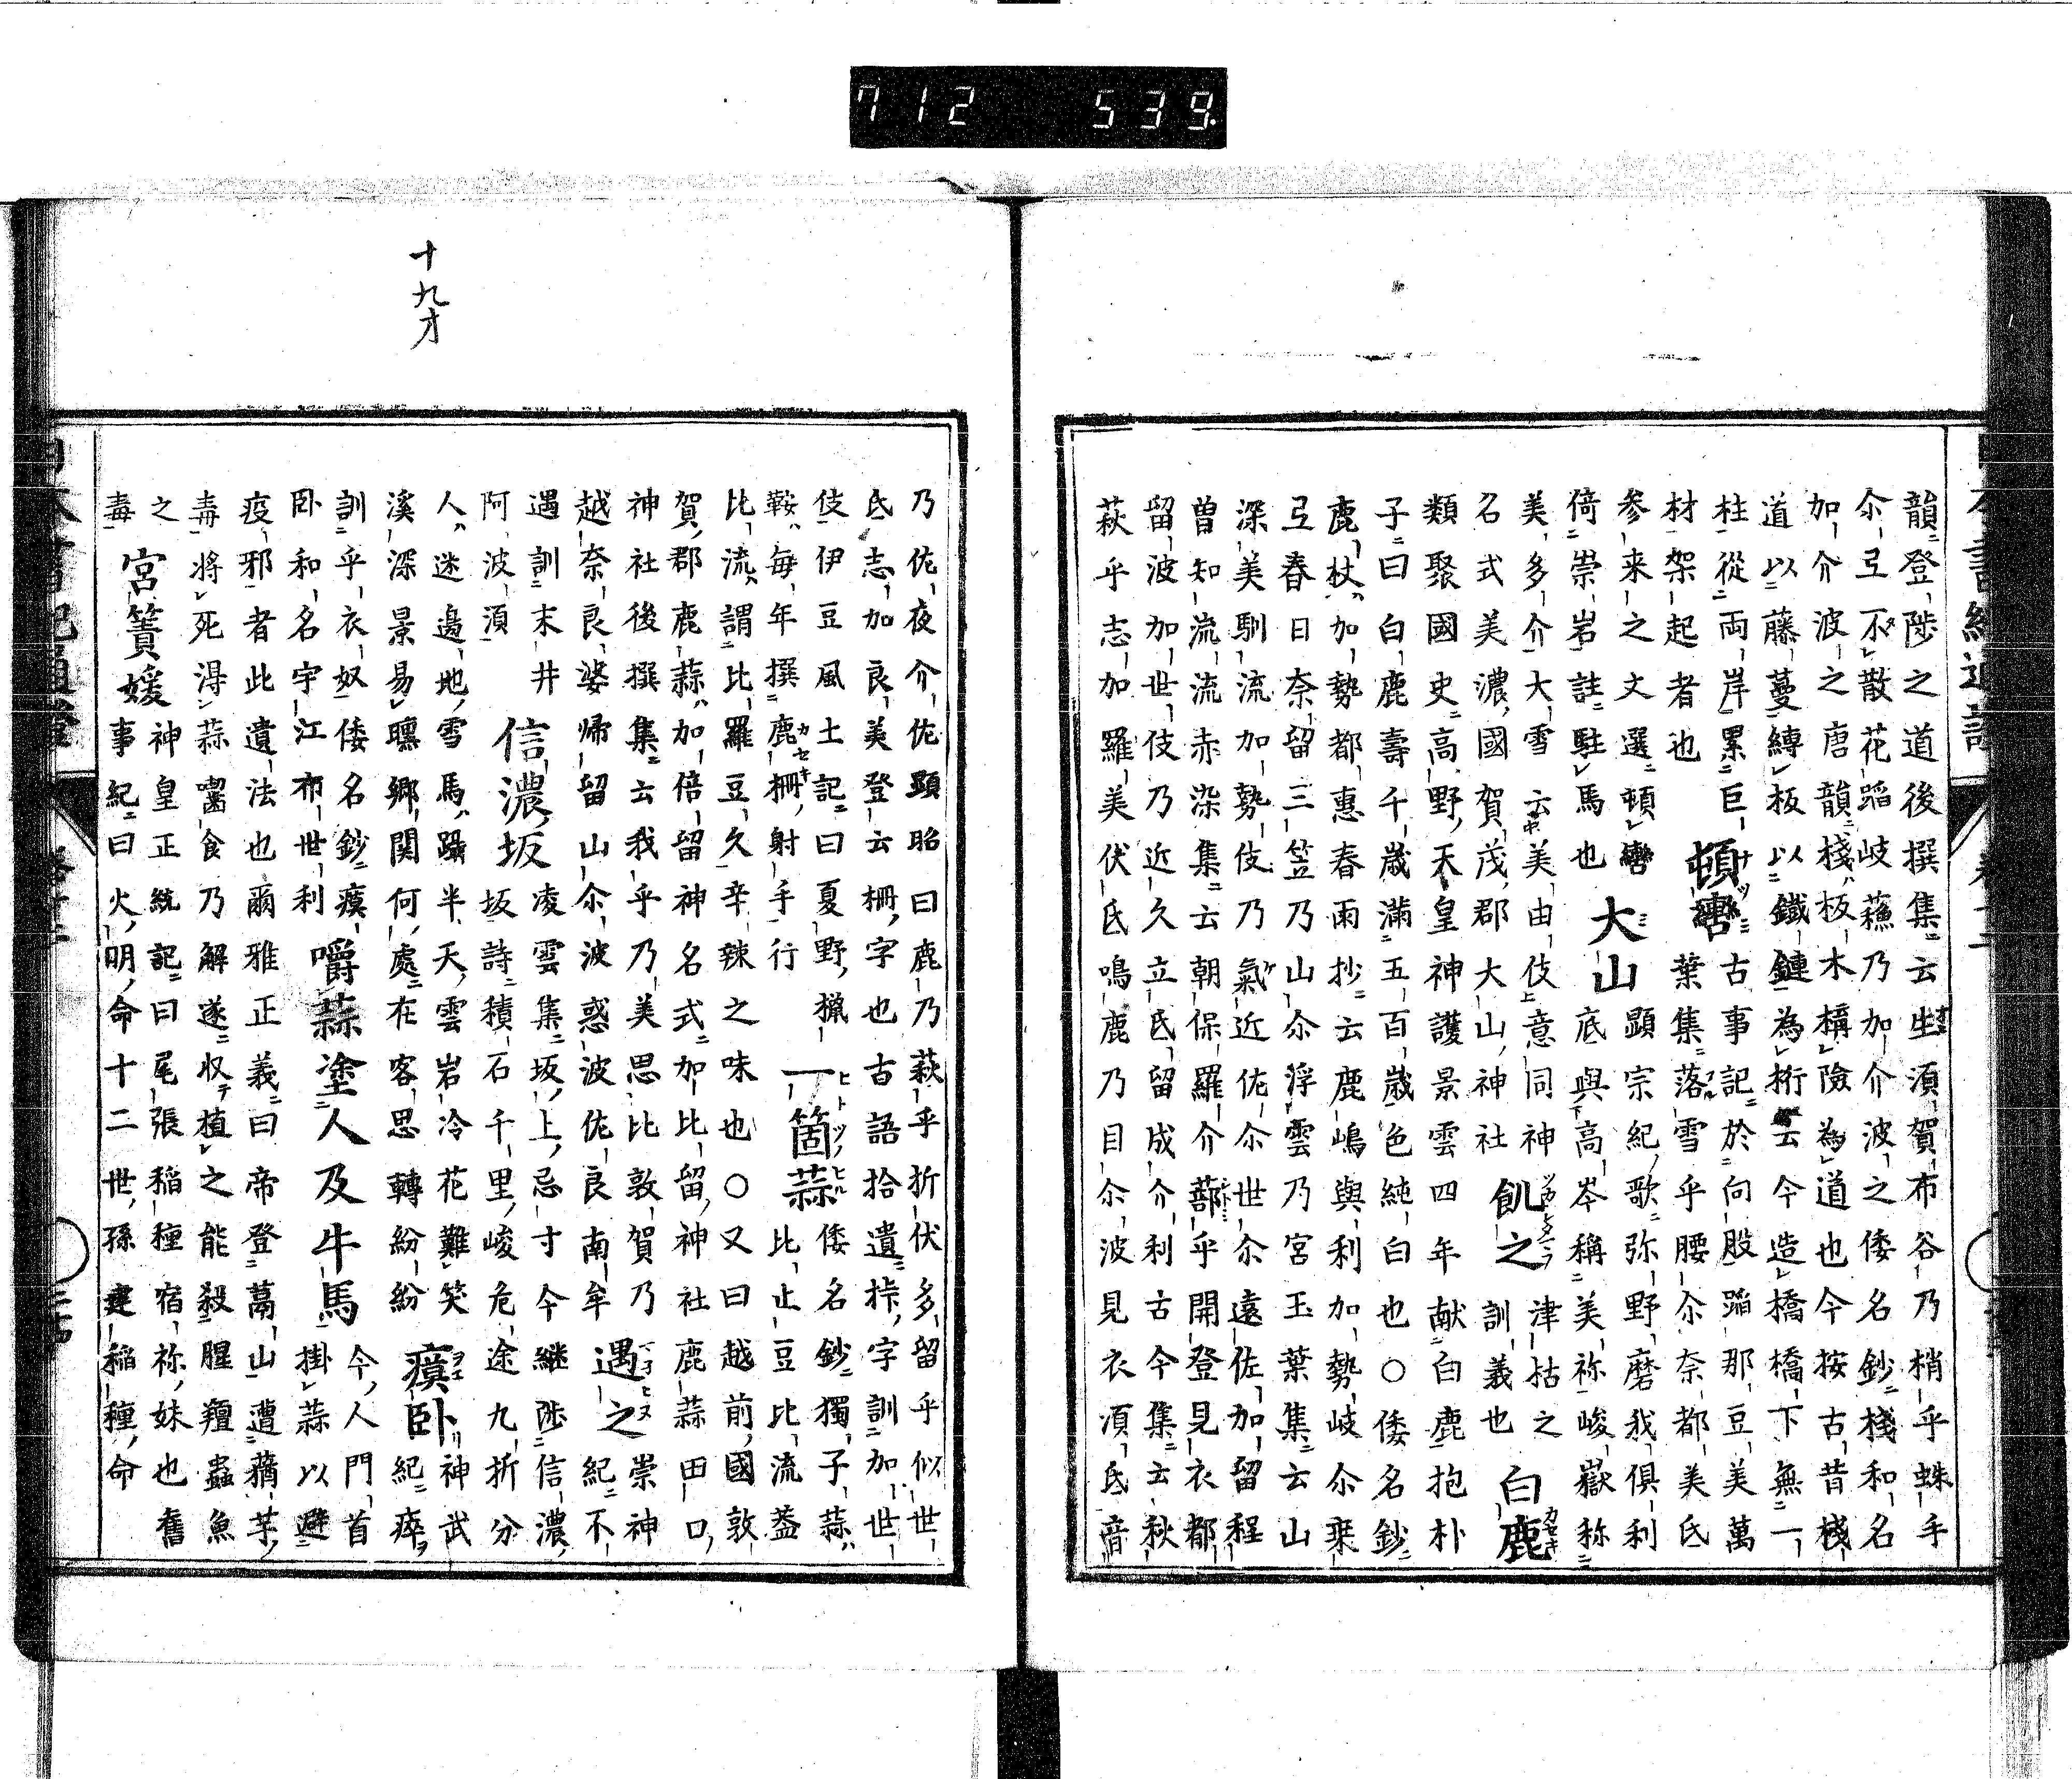 712 539
韻登陟之道後撰集云生須賀布谷乃梢乎蛛手
尒弖不散花蹈岐蘓乃加介波之倭名鈔棧和名
加介波之唐韻棧板木構險為道也今按古昔棧
道以藤蔓縛板以鐵鏈為桁云今造橋橋下無一
柱從兩岸累巨
材架起者也
頓轡
古事記於向股蹈那豆美萬
葉集落雪乎腰尒奈都美氐
参来之文選頓轡
倚崇岩註駐馬也
大山
顕宗紀歌弥野磨我俱利
底與高岑稱美祢峻嶽称
美多介大雪云美由伎意同神
名式美濃國賀茂郡大山神社
飢之
津枯之
訓義也
白鹿
類聚國史高野天皇神護景雲四年献白鹿抱朴
子曰白鹿壽千歳滿五百歳色純白也○倭名鈔
鹿杖加勢都惠春雨抄云鹿嶋與利加勢岐尒乗
弖春日奈留三笠乃山尒浮雲乃宮玉葉集云山
深美馴流加勢伎乃氣近佐尒世尒遠佐加留程
曽知流流赤染集云朝保羅介蔀乎開登見衣都
留波加世伎乃近久立氐留成介利古今集云秋
萩乎志加羅美伏氐鳴鹿乃目尒波見衣湏氐音
十九才
乃佐夜介佐顕昭曰鹿乃萩乎折伏多留乎似世
氐志加良美登云柵字也古語拾遺㭙字訓加世
伎伊豆風土記曰夏野猟
鞍毎年撰鹿柵射手行
一箇蒜
倭名鈔獨子蒜
比止豆比流盖
比流謂比羅豆久辛辣之味也○又曰越前國敦
賀郡鹿蒜加倍留神名式加比留神社鹿蒜田口
神社後撰集云我乎乃美思比敦賀乃
越奈良婆帰留山尒波惑波佐良南牟
遇之
崇神
紀不
遇訓末井
阿波湏
信濃坂
凌雲集坂上忌寸今継陟信濃
坂詩積石千里峻危途九折分
人迷邉地雪馬躡半天雲岩冷花難笑
溪深景易曛郷関何處在客思轉紛紛
瘼卧
神武
紀瘁
訓乎衣奴倭名鈔瘼
卧和名宇江布世利
嚼蒜塗人及牛馬
今人門首
掛蒜以避
疫邪者此遺法也爾雅正義曰帝登蒚山遭蕕芋
毒將死得蒜囓食乃解遂収植之能殺腥羶蟲魚
之
毒
宮簀媛
神皇正統記曰尾張稲種宿祢妹也舊
事紀曰火明命十二世孫建稲種命